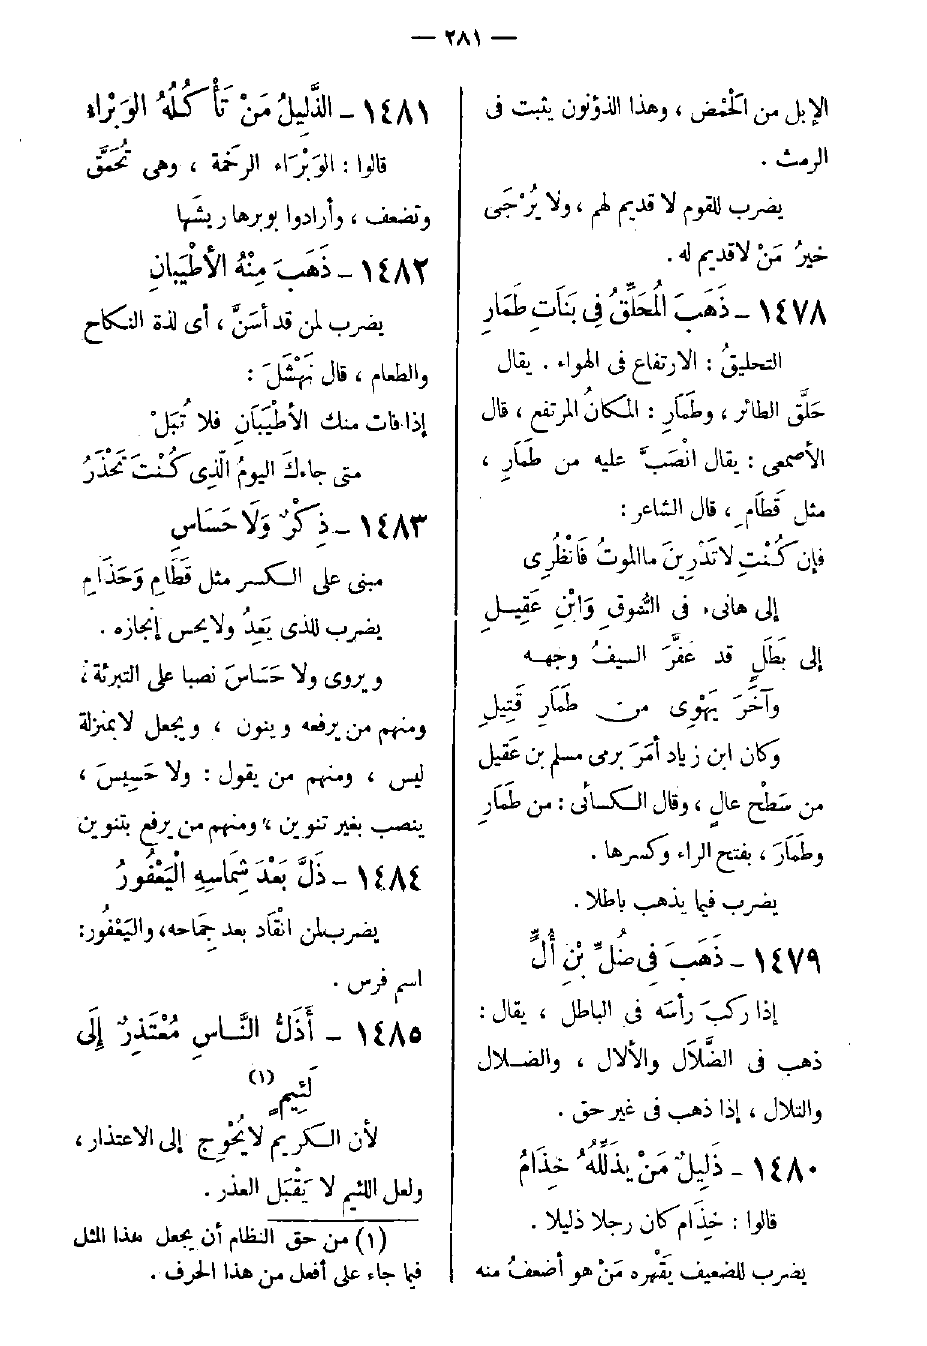 — ٢٨١ —
الإبل من الْحَمْض ، وهذا الذؤنون يثبت فى
الرمث .
يضرب للقوم لا قديم لهم ، ولا يُرْجَى
خيرُ مَنْ لاقديم له .
١٤٧٨ – ذَهَبَ الْمُحَلِّقُ فِى بَنَاتِ طَمَارِ
التحليقُ : الارتفاع فى الهواء . يقال
حَلَّق الطائر ، وطَمَارِ : المكانُ المرتفع ، قال
الأصمعى : يقال انْصَبَّ عليه من طَمَارِ ،
مثل قَطَامِ ، قال الشاعر :
فإن كُنْتِ لاتَدْرِينَ ماالموتُ فَانْظُرِى
إلى هانىء فى السُّوقِ وَابْنِ عَقِيلِ
إلى بَطَلٍ قد عَفَّرَ السيفُ وجهه
وآخَرَ يَهْوِى من طَمَارِ قَتِيلِ
وكان ابن زياد أمَرَ برمى مسلم بن عَقيل
من سَطْح عالٍ ، وقال الكسائى : من طَمَارِ
وطَمَارَ ، بفتح الراء وكسرها .
يضرب فيما يذهب باطلا .
١٤٧٩ – ذَهَبَ فِى ضُلِّ بْنِ أُلٍّ
إذا ركبَ رأسَه فى الباطل ، يقال :
ذهب فى الضَّلاَل والألال ، والضلال
والتلال ، إذا ذهب فى غير حق .
١٤٨٠ – ذَلِيلٌ مَنْ يذَلِّلُهُ خِذَامُ
قالوا : خِذَام كان رجلا ذليلا .
يضرب للضعيف يَقْهره مَنْ هو أضعفُ منه
١٤٨١ – الذَّلِيلُ مَنْ تَأْكُلُهُ الوَبْرَاء
قالوا : الوَبْرَاء الرخَمة ، وهى تُحَمَّق
وتضعف ، وأرادوا بوبرها ريشَها
١٤٨٢ – ذَهَبَ مِنْهُ الأَطْيَبانِ
يضرب لمن قد أسَنَّ ، أى لذة النكاح
والطعام ، قال نَهْشَلَ :
إذا فات منك الأطْيَبَانِ فلا تُبَلْ
متى جاءكَ اليومُ الَّذِى كُنْتَ تَحْذَرُ
١٤٨٣ – ذِكْرٌ وَلَا حَسَاسِ
مبنى على الكسر مثل قَطَامِ وَحَذَامِ
يضرب للذى يَعِدُ ولايحس إنجازه .
ويروى ولا حَسَاسَ نصبا على التبرئة ؛
ومنهم من يرفعه وينون ، ويجعل لا بمنزلة
ليس ، ومنهم من يقول : ولا حَسِيسَ ،
ينصب بغير تنوين ، ومنهم من يرفع بتنوين
١٤٨٤ – ذَلَّ بَعْدَ شِمَاسِهِ الْيَعْفُورُ
يضرب لمن انْقَاد بعد جِمَاحه ، واليَعْفُور :
اسم فرس .
١٤٨٥ – أَذَلُّ النَّاسِ مُعْتَذِرٌ إِلَى
لَئِيمٍ (١)
لأن الكريم لايُحْوِج إلى الاعتذار ،
ولعل اللئيم لا يَقْبَل العذر .
(١) من حق النظام أن يجعل هذا المثل
فيما جاء على أفعل من هذا الحرف .